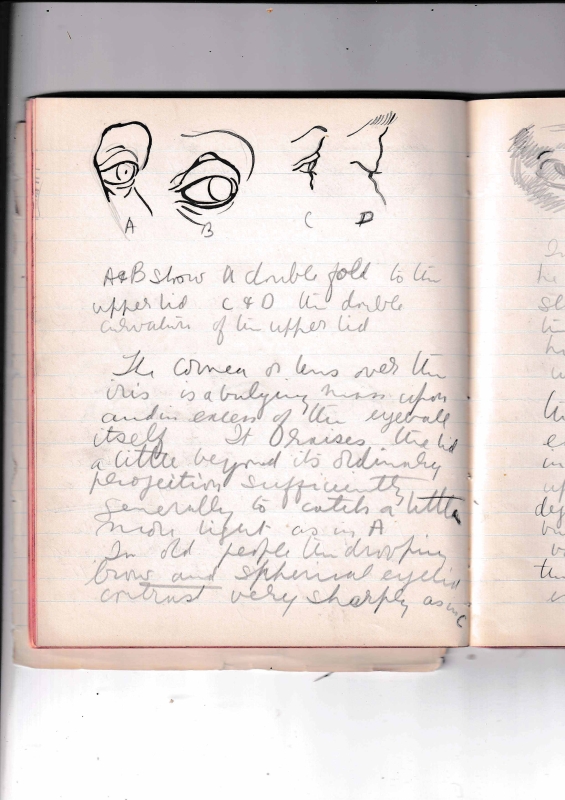 A B C D
A & B show a double fold to the
upper lid C & D the double
curvature of the upper lid
The cornea or lens over the
iris is a bulging mass upon
and in excess of the eyeball
itself It raises the lid
a little beyond its ordinary
projection sufficiently
generally to catch a little
more light as in A
In old people the drooping
brow and spherical eyelid
contrast very sharply as in C